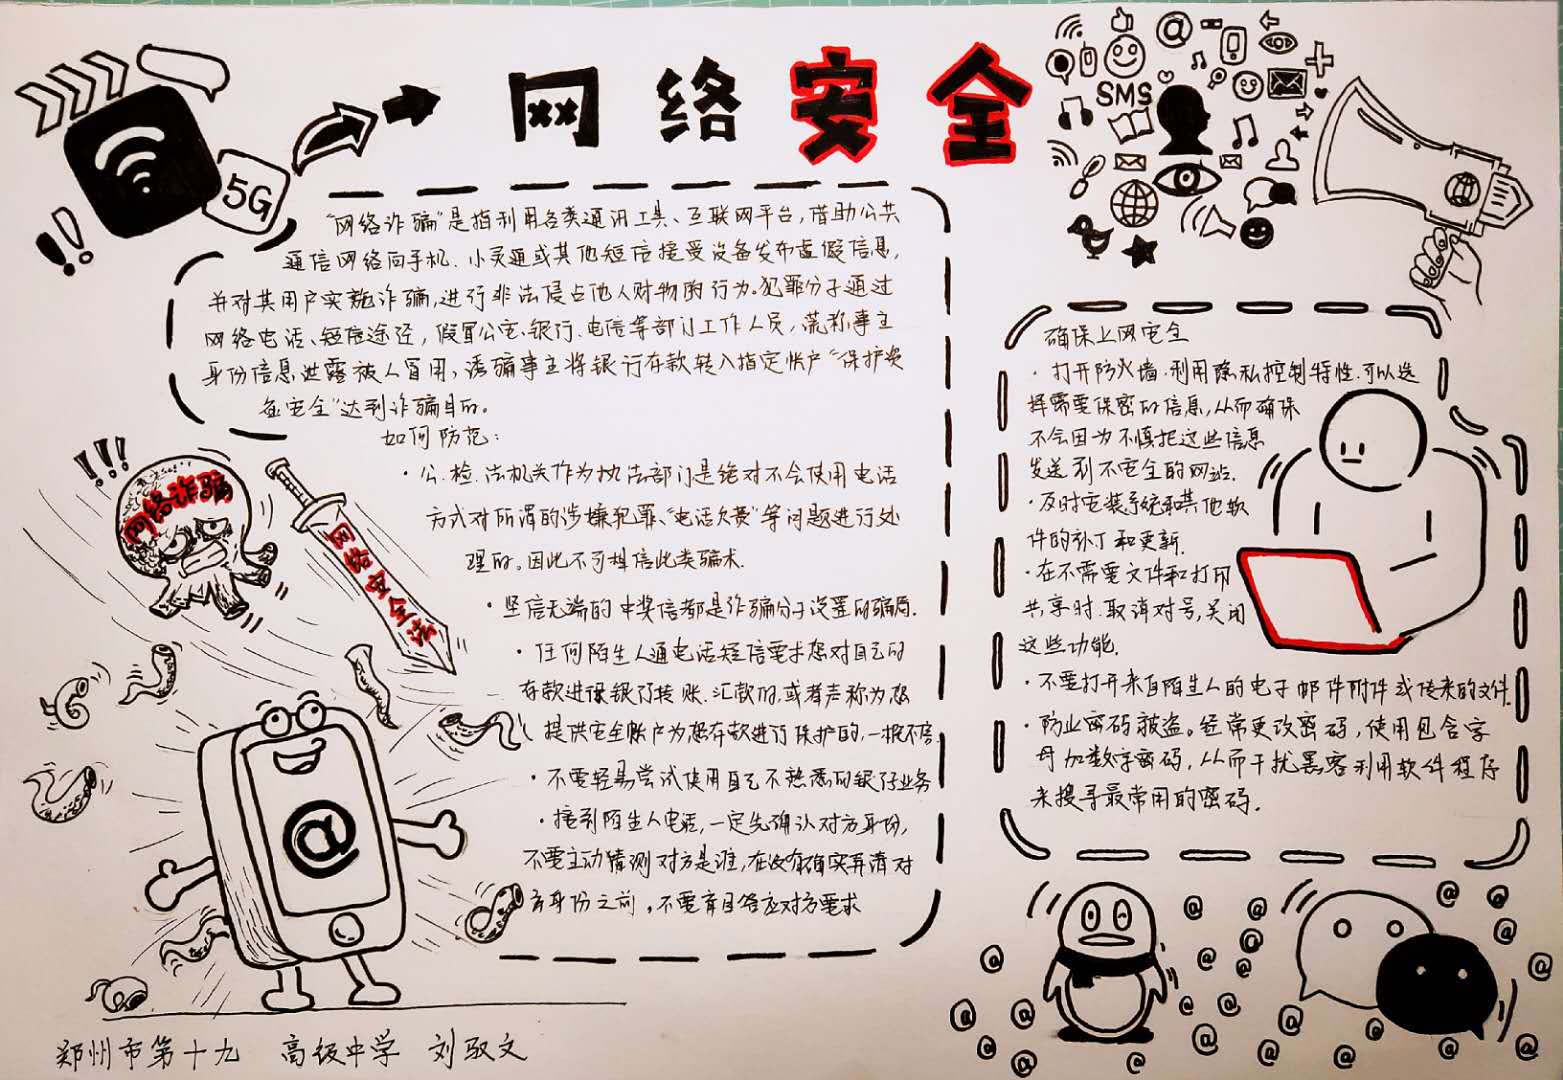 网络安全
5G
SMS
"网络诈骗"是指利用各类通讯工具、互联网平台,借助公共
通信网络向手机、小灵通或其他短信接受设备发布虚假信息,
并对其用户实施诈骗,进行非法侵占他人财物的行为。犯罪分子通过
网络电话、短信途径,假冒公安、银行、电信等部门工作人员,谎称事主
身份信息泄露被人冒用,诱骗事主将银行存款转入指定帐户"保护资
金安全"达到诈骗目的。
如何防范:
·公、检、法机关作为执法部门是绝对不会使用电话
方式对所谓的涉嫌犯罪、"电话欠费"等问题进行处
理的。因此不可相信此类骗术.
·坚信无端的中奖信都是诈骗分子设置的骗局.
·任何陌生人通电话短信要求您对自己的
存款进行银行转账、汇款的,或者声称为您
提供安全帐户为您存款进行保护的,一概不信
·不要轻易尝试使用自己不熟悉的银行业务
·接到陌生人电话,一定先确认对方身份,
不要主动猜测对方是谁,在没有确实弄清对
方身份之前,不要盲目答应对方要求
网络诈骗
网络安全法
@
确保上网安全
·打开防火墙.利用隐私控制特性.可以选
择需要保密的信息,从而确保
不会因为不慎把这些信息
发送到不安全的网站.
·及时安装系统和其他软
件的补丁和更新.
·在不需要文件和打印
共享时.取消对号,关闭
这些功能.
·不要打开来自陌生人的电子邮件附件或传来的文件.
·防止密码被盗。经常更改密码,使用包含字
母加数字密码,从而干扰黑客利用软件程序
来搜寻最常用的密码.
郑州市第十九 高级中学 刘驭文